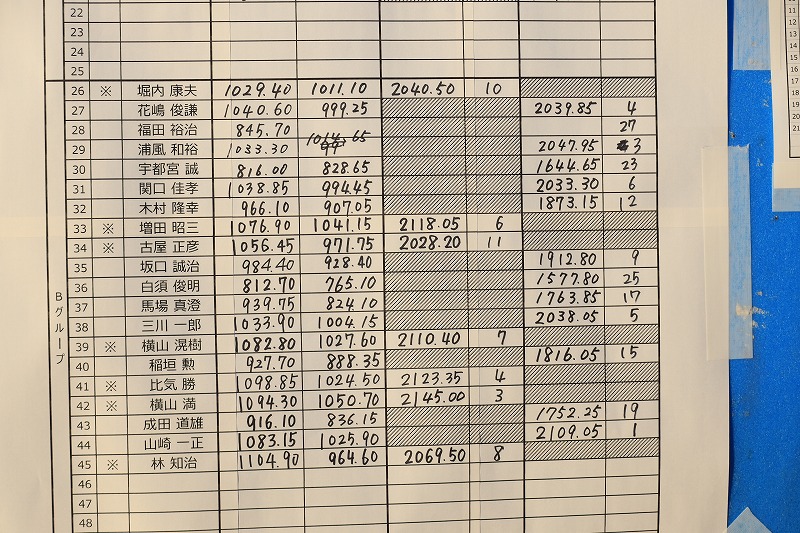 22
23
24
25
26 ※ 堀内 康夫 1029.40 1011.10 2040.50 10
27 花嶋 俊謙 1040.60 999.25 2039.85 4
28 福田 裕治 845.70 27
29 浦風 和裕 1033.30 1014.65 2047.95 3
30 宇都宮 誠 816.00 828.65 1644.65 23
31 関口 佳孝 1038.85 994.45 2033.30 6
32 木村 隆幸 966.10 907.05 1873.15 12
33 ※ 増田 昭三 1076.90 1041.15 2118.05 6
34 ※ 古屋 正彦 1056.45 971.75 2028.20 11
35 坂口 誠治 984.40 928.40 1912.80 9
36 白須 俊明 812.70 765.10 1577.80 25
37 馬場 真澄 939.75 824.10 1763.85 17
38 三川 一郎 1033.90 1004.15 2038.05 5
39 ※ 横山 滉樹 1082.80 1027.60 2110.40 7
40 稲垣 勲 927.70 888.35 1816.05 15
41 ※ 比気 勝 1098.85 1024.50 2123.35 4
42 ※ 横山 満 1094.30 1050.70 2145.00 3
43 成田 道雄 916.10 836.15 1752.25 19
44 山崎 一正 1083.15 1025.90 2109.05 1
45 ※ 林 知治 1104.90 964.60 2069.50 8
46
47
48
Bグループ
11
12
13
14
15
16
17
18
19
20
21